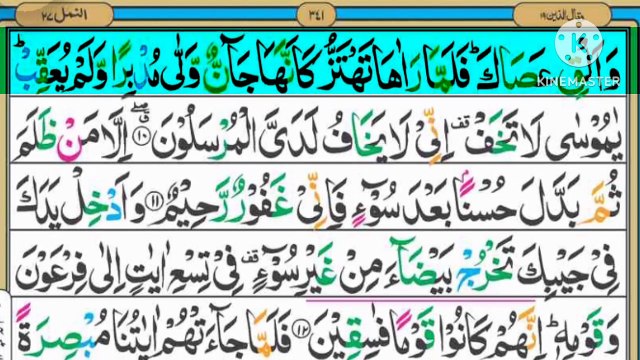 النمل ٢٧
٣٤١
وقال الذين ١٩
KINEMASTER
وَاَلْقِ عَصَاكَ ؕ فَلَمَّا رَاٰهَا تَهْتَزُّ كَاَنَّهَا جَآنٌّ وَّلّٰى مُدْبِرًا وَّلَمْ يُعَقِّبْ ؕ
يٰمُوْسٰى لَا تَخَفْ ۫ اِنِّىْ لَا يَخَافُ لَدَىَّ الْمُرْسَلُوْنَ ۖۗ ۝۱۰ اِلَّا مَنْ ظَلَمَ
ثُمَّ بَدَّلَ حُسْنًۢا بَعْدَ سُوْٓءٍ فَاِنِّىْ غَفُوْرٌ رَّحِيْمٌ ۝۱۱ وَاَدْخِلْ يَدَكَ
فِىْ جَيْبِكَ تَخْرُجْ بَيْضَآءَ مِنْ غَيْرِ سُوْٓءٍ ۫ فِىْ تِسْعِ اٰيٰتٍ اِلٰى فِرْعَوْنَ
وَقَوْمِهٖ ؕ اِنَّهُمْ كَانُوْا قَوْمًا فٰسِقِيْنَ ۝۱۲ فَلَمَّا جَآءَتْهُمْ اٰيٰتُنَا مُبْصِرَةً